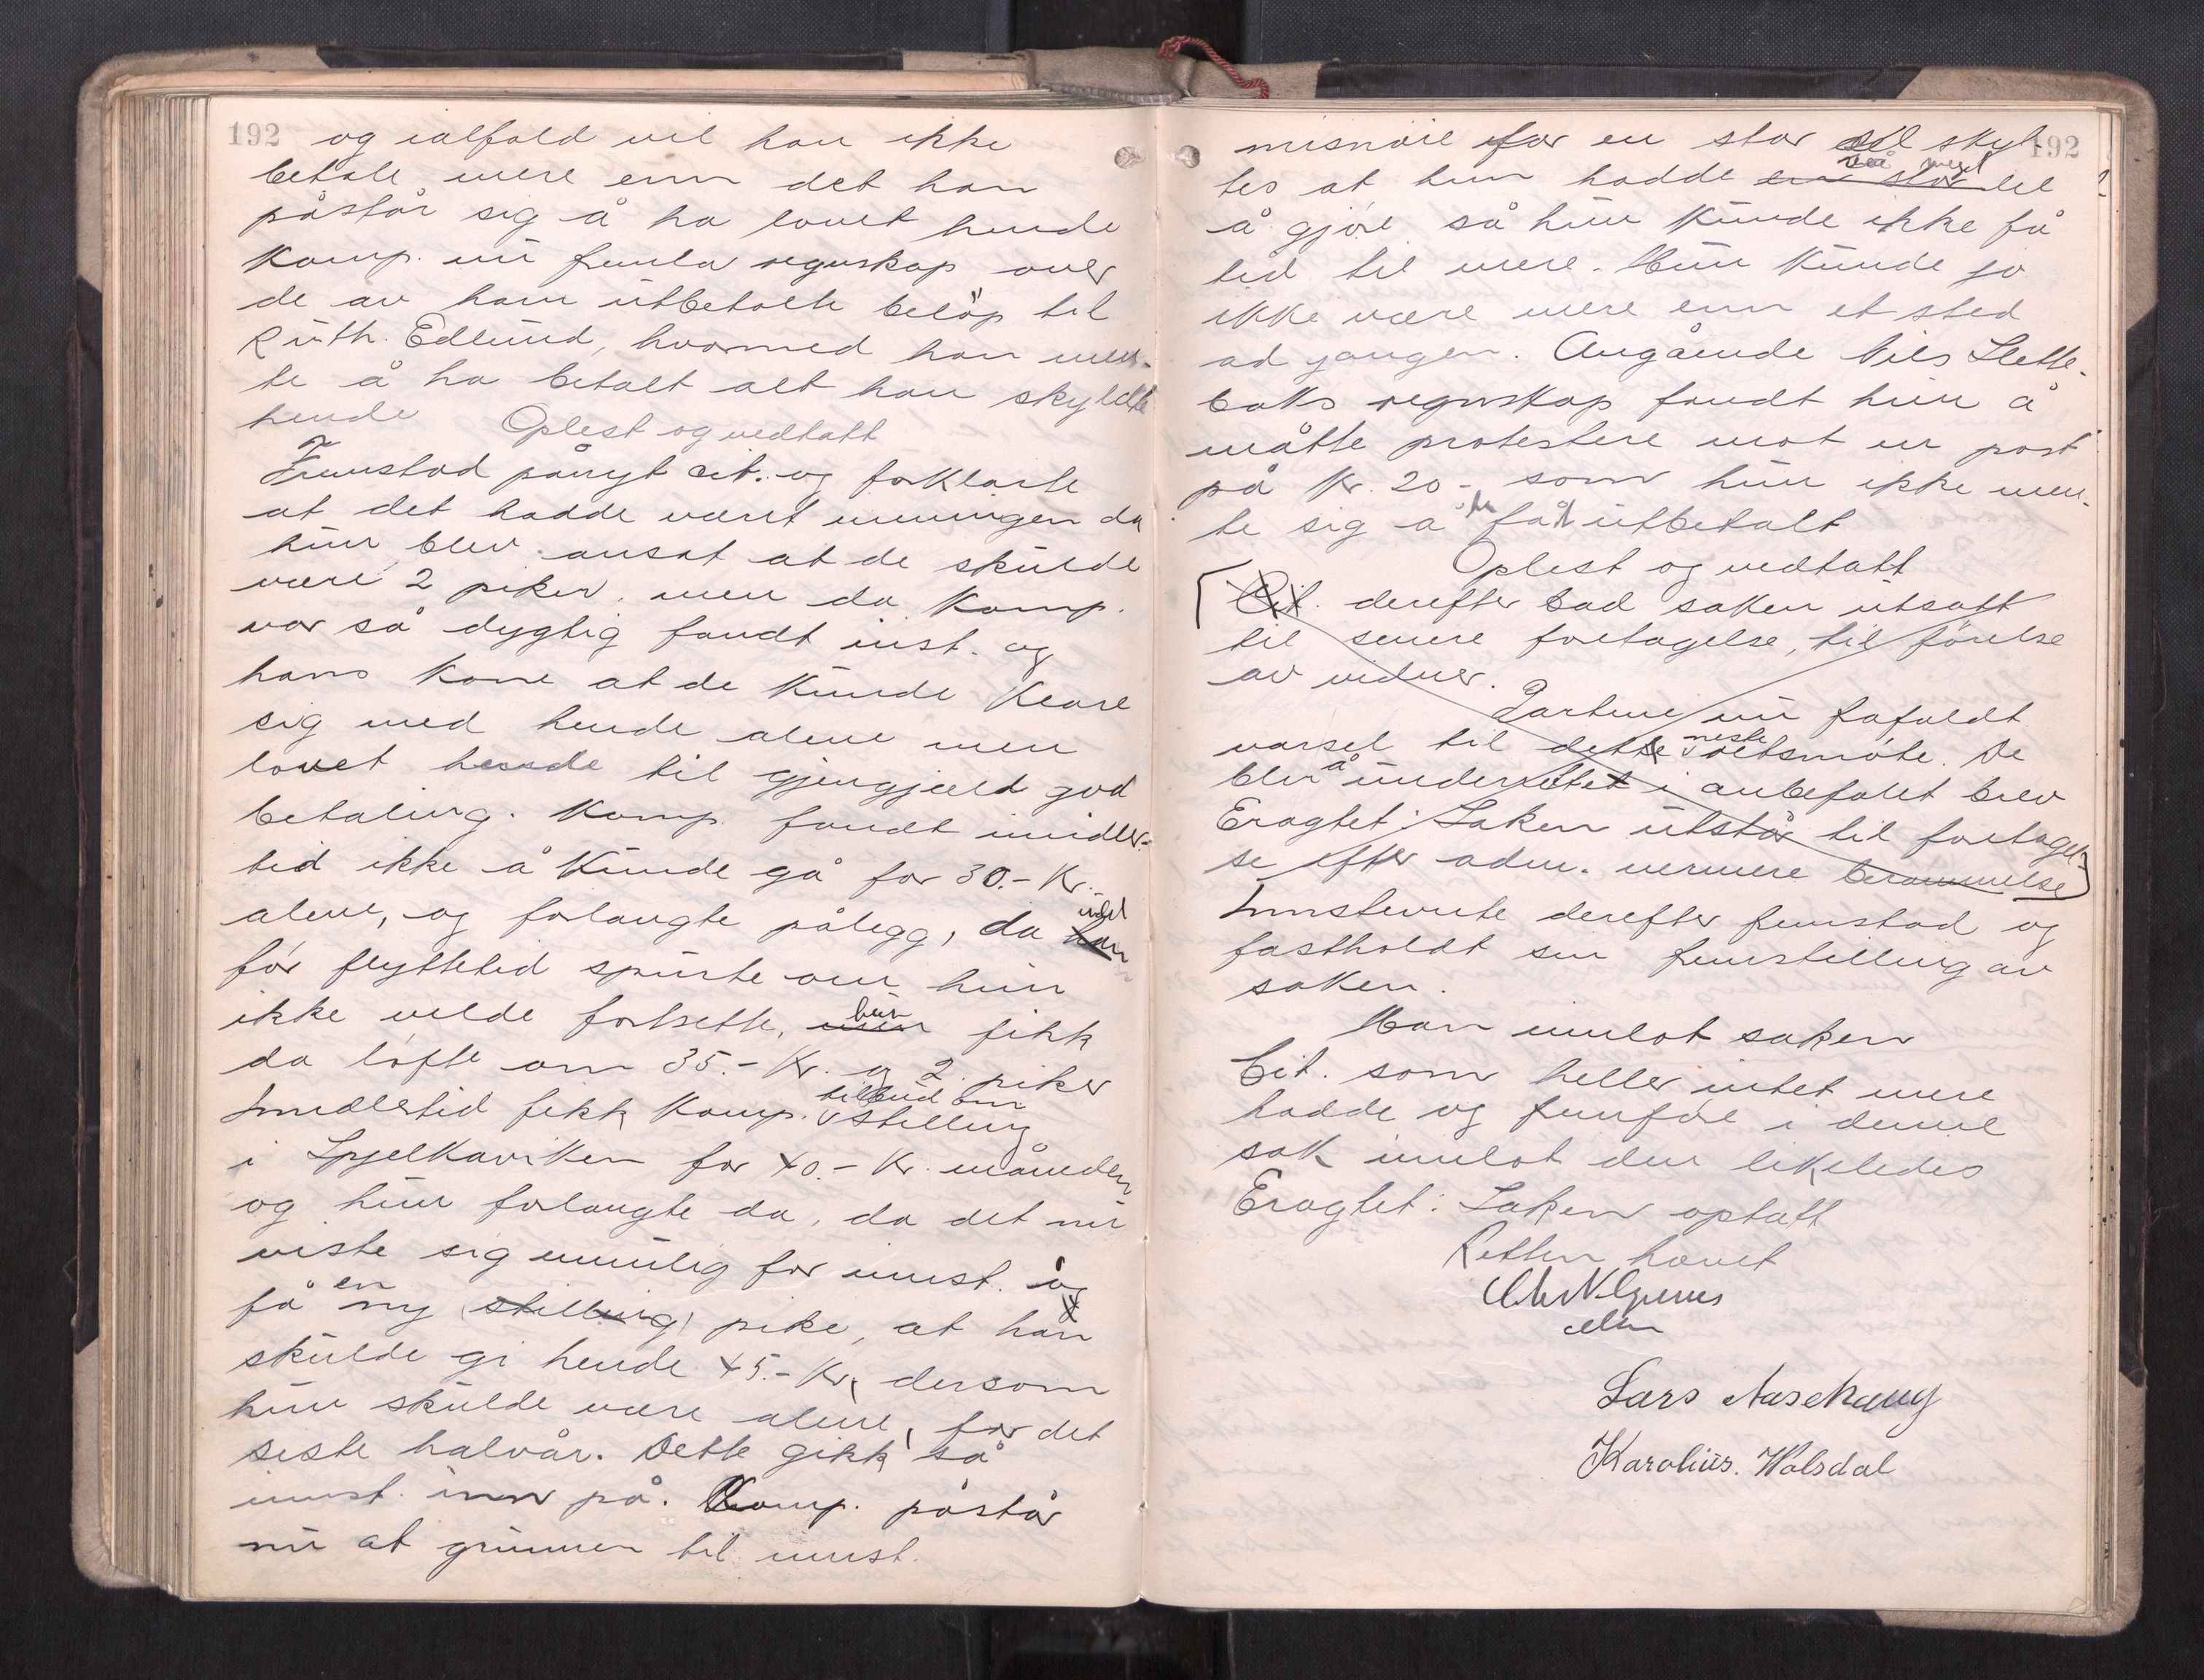 192
og ialfald vil han ikke
betale mere enn det han
påstår sig å ha lovet hende
Komp. nu fremla regnskap over
de av ham utbetalte beløp til
Ruth. Edlund, hvormed han men-
te å ha betalt alt han skyldte
hende Oplest og vedtatt
Fremstod pånyt cit. og forklarte
at det hadde været meningen da
hun blev ansat at de skulde
være 2 piker, men da Komp.
var så dygtig fandt inst. og
hans kone at de kunde klare
sig med hende alene men
lovet hende til gjengjæld god
betaling. Komp. fandt imidler-
tid ikke å kunde gå for 30.- Kr.
alene, og forlangte pålegg, da han
før flyttetid spurte om hun
ikke vilde fortsette, hun fikk
da løfte om 35.- Kr. og 2 piker
Imidlertid fikk Komp. tilbud om stilling
i Spjelkaviken for 40.- Kr. måneden
og hun forlangte da, da det nu
viste sig umulig for innst. å
få en ny (stilling) pike, at han
skulde gi hende 45.- Kr, dersom
hun skulde være alene, for det
siste halvår. Dette gikk så
innst. inn på. Komp. påstår
nu at grunnen til innst.
192
misnøie for en stor del skyl-
tes at hun hadde en stor del
å gjøre så hun kunde ikke få
tid til mere. Hun kunde jo
ikke være mere enn et sted
ad gangen. Angående Nils Slette-
baks regnskap fandt hun å
måtte protestere mot en post
på Kr. 20- som hun ikke men-
te sig å ha fåt utbetalt
Oplest og vedtatt
Cit. derefter bad saken utsatt
til senere foretagelse, til førelse
av vidner.
Partene nu fafaldt
varsel til dette neste rettsmøte. De
blir å underrettet i anbefalet brev
Eragtet: Saken utstår til foretagel-
se efter adm. nermere berammelse
Innstevnte derefter fremstod og
fastholdt sin fremstilling av
saken.
Han innlot saken
Cit. som heller intet mere
hadde og fremføre i denne
sak innlot den likeledes
Eragtet: Saken optatt
Retten hævet
Lars Aasehaug
Karolius. Wolsdal